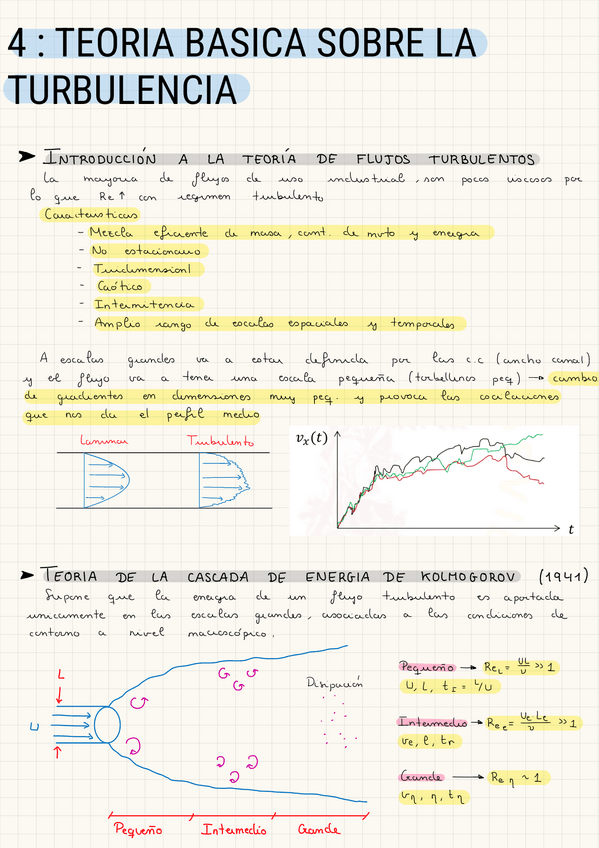 4 : TEORIA BASICA SOBRE LA
TURBULENCIA
➤ INTRODUCCIÓN A LA TEORÍA DE FLUJOS TURBULENTOS
La mayoria de flujos de uso industrial, son pocos viscosos por
lo que Re ↑ con regimen turbulento
Caracteristicas
- Mezcla eficiente de masa, cant. de mvto y energia
- No estacionario
- Tridimensionl
- Caótico
- Intermitencia
- Amplio rango de escalas espaciales y temporales
A escalas grandes va a estar definida por las c.c (ancho canal)
y el flujo va a tener una escala pequeña (torbellinos peq) → cambio
de gradientes en dimensiones muy peq. y provoca las oscilaciones
que nos da el perfil medio
Laminar
Turbulento
vₓ(t)
t
➤ TEORIA DE LA CASCADA DE ENERGIA DE KOLMOGOROV (1941)
Supone que la energia de un flujo turbulento es aportada
unicamente en las escalas grandes, asociadas a las condiciones de
contorno a nivel macroscópico.
L
U
Disipación
Pequeño
Intermedio
Grande
Pequeño → Re_L = UL/ν >> 1
U, L, t_I = L/U
Intermedio → Re_e = U_e L_e/ν >> 1
ve, l, tr
Grande → Re η ~ 1
vη, η, tη